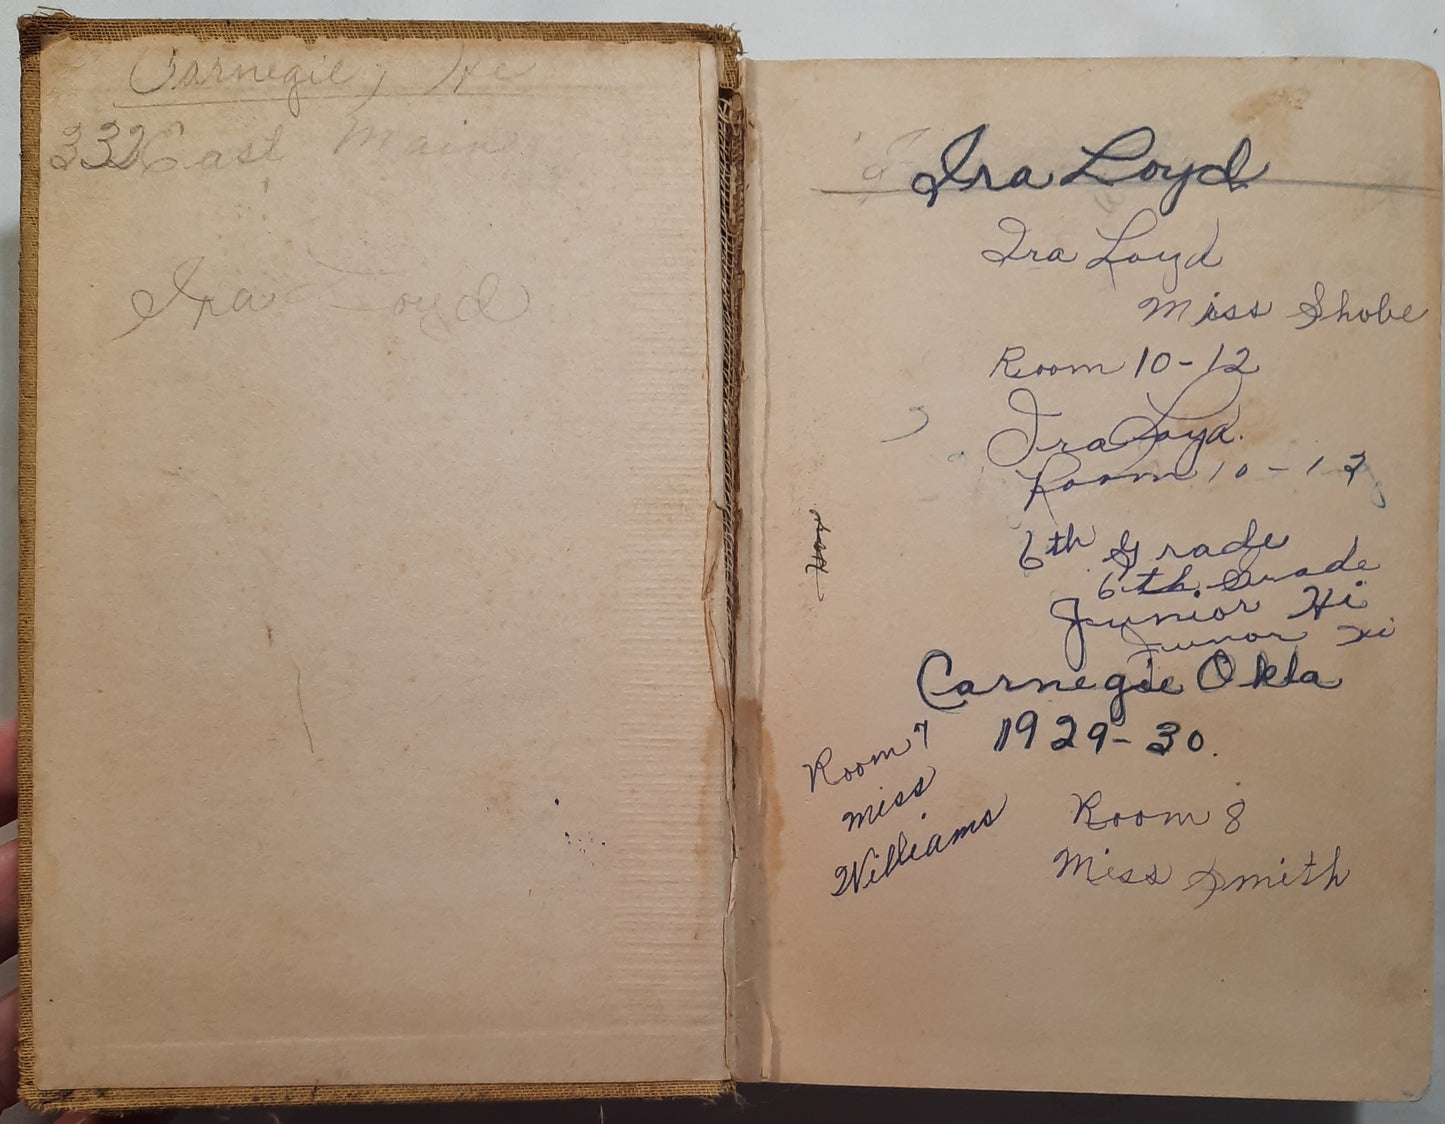 Carnegie,
332 East Main
Ira Loyd
Ira Loyd
Ira Loyd
Miss Shobe
Room 10-12
Ira Loyd.
Room 10-12
6th Grade
6th Grade
Junior Hi
Junor Hi
Carnegie Okla
1929-30.
Room 7
Miss
Williams
Room 8
Miss Smith